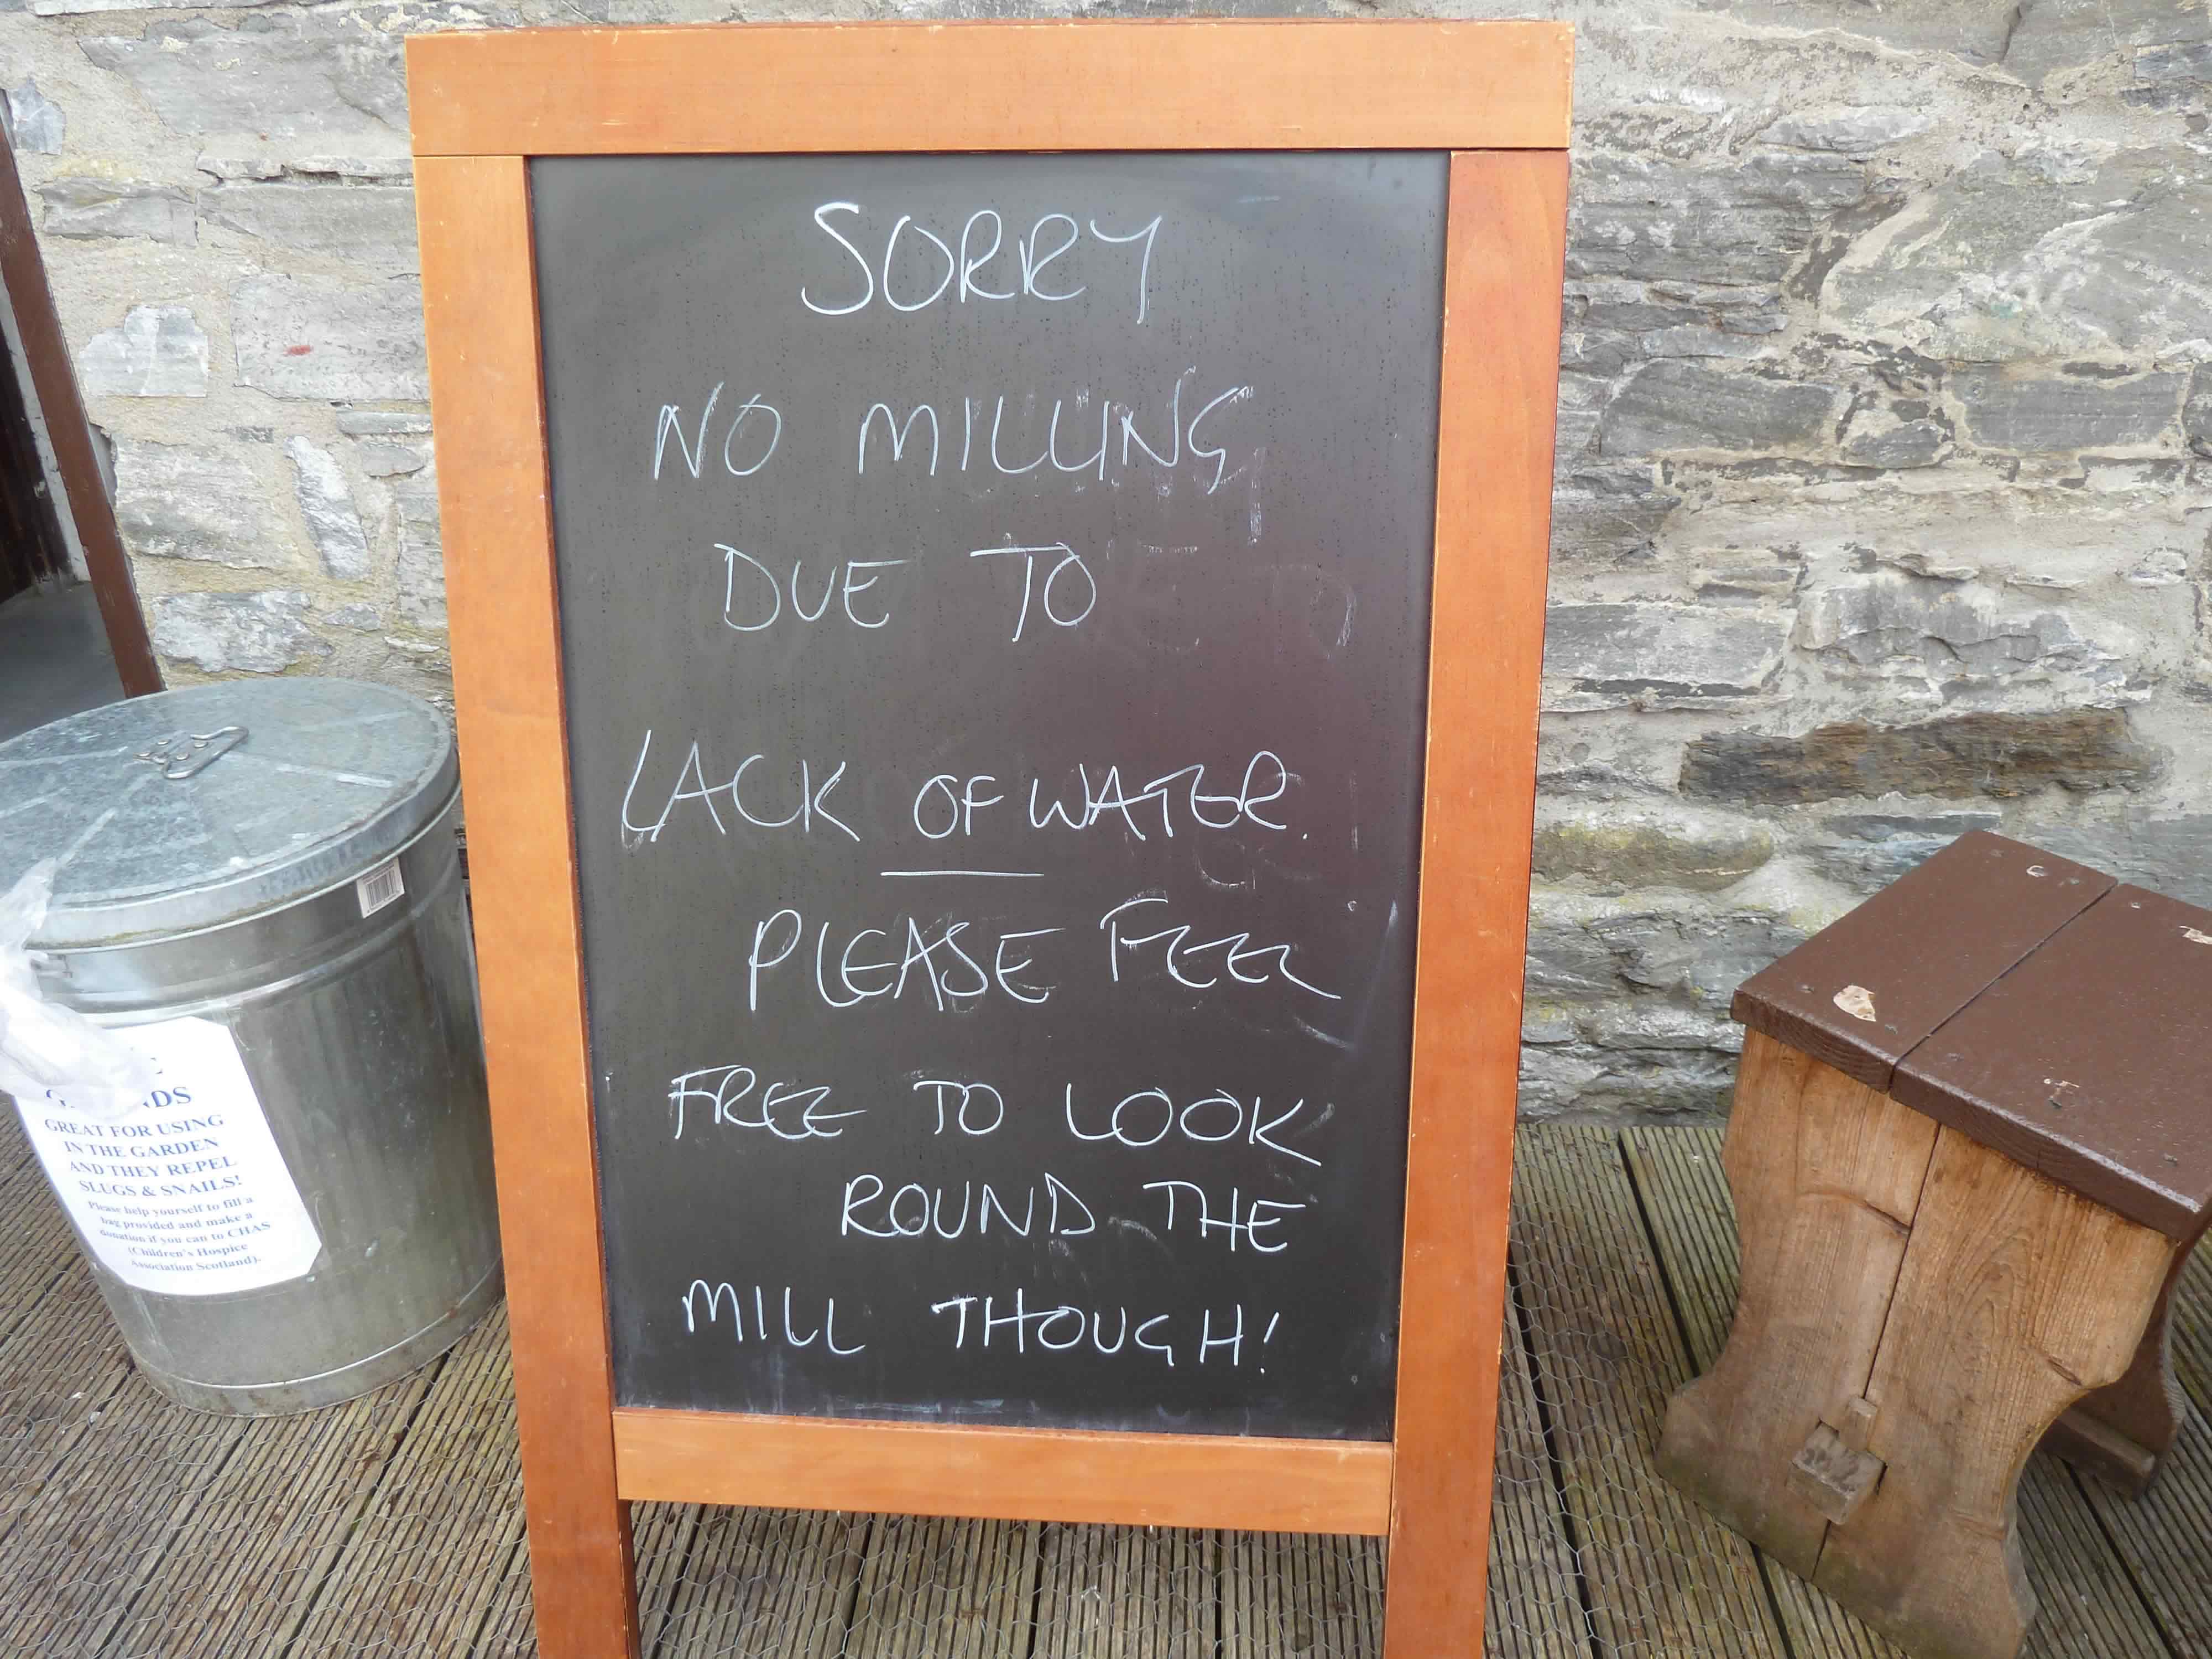 SORRY
NO MILLING
DUE TO
LACK OF WATER.
PLEASE FEEL
FREE TO LOOK
ROUND THE
MILL THOUGH!
GREAT FOR USING
IN THE GARDEN
AND THEY REPEL
SLUGS & SNAILS!
Please help yourself to fill a
bag provided and make a
donation if you can to CHAS
(Children's Hospice
Association Scotland).